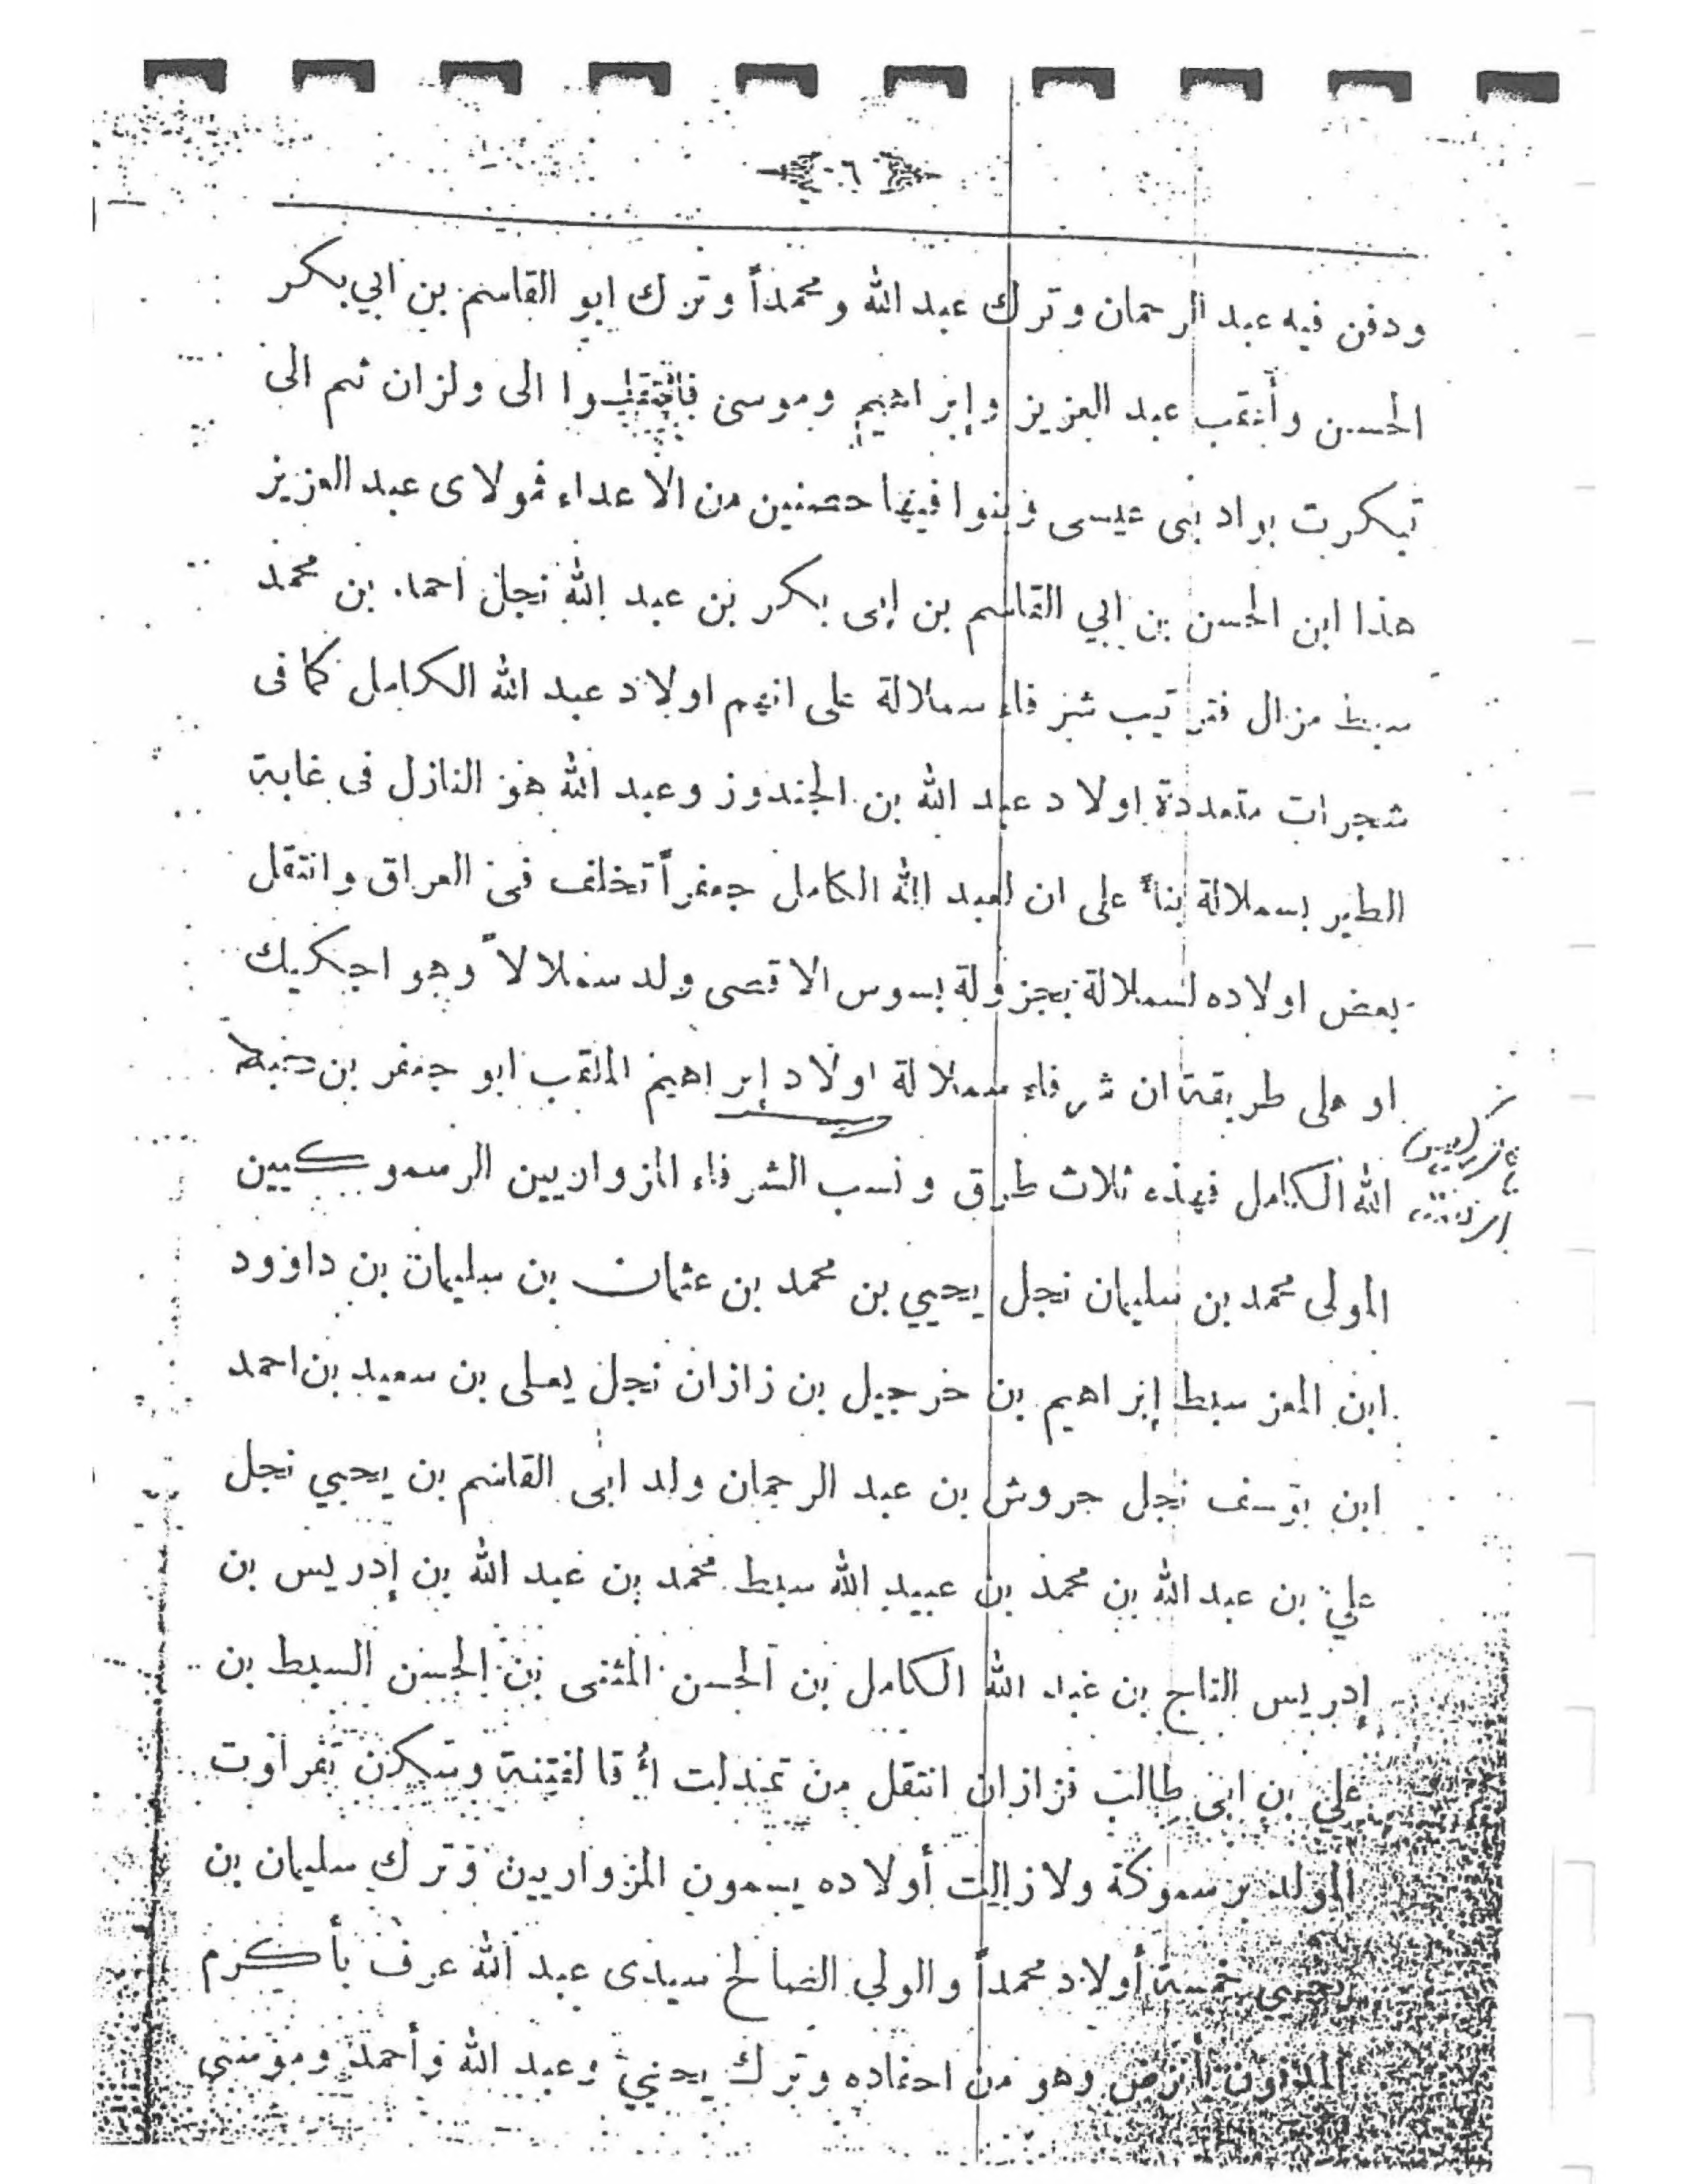 ٦
ودفن فيه عبد الرحمان وترك عبد الله ومحمداً وترك ابو القاسم بن ابي بكر
الحسن وأعقب عبد العزيز وإبراهيم وموسى فانتقلوا الى ولزان ثم الى
تبكرت بواد بنى عيسى وبنوا فيها حصنين من الاعداء فمولاى عبد العزيز
هذا ابن الحسن بن ابي القاسم بن ابى بكر بن عبد الله نجل احمد بن محمد
سبط مزال فترتيب شرفاء سملالة على انهم اولاد عبد الله الكامل كما فى
شجرات متعددة اولاد عبد الله بن الجندوز وعبد الله هو النازل فى غابة
الطير بسملالة بناءً على ان لعبد الله الكامل جعفراً تخلف فى العراق وانتقل
بعض اولاده لسملالة بجزولة بسوس الاقصى ولد سملالاً وهو اجكريك
او على طريقة ان شرفاء سملالة اولاد إبراهيم الملقب ابو جعفر بن
الله الكامل فهذه ثلاث طرق ونسب الشرفاء المزواريين الرسموكيين
المولى محمد بن سليمان نجل يحيي بن محمد بن عثمان بن سليمان بن داوود
ابن المعز سبط إبراهيم بن خرجيل بن زازان نجل يعلى بن سعيد بن احمد
ابن يوسف نجل جروش بن عبد الرحمان ولد ابى القاسم بن يحيي نجل
علي بن عبد الله بن محمد بن عبيد الله سبط محمد بن عبد الله بن إدريس بن
إدريس التاج بن عبد الله الكامل بن الحسن المثنى بن الحسن السبط بن
علي بن ابى طالب فزازان انتقل من تمدلت أقا لفتنة وسكن تفراوت
المولد برسموكة ولازالت أولاده يسمون المزواريين وترك سليمان بن
يحيي خمسة أولاد محمداً والولي الصالح سيدى عبد الله عرف بأكرم
المدفون وهو من احفاده وترك يحيي وعبد الله وأحمد وموسى